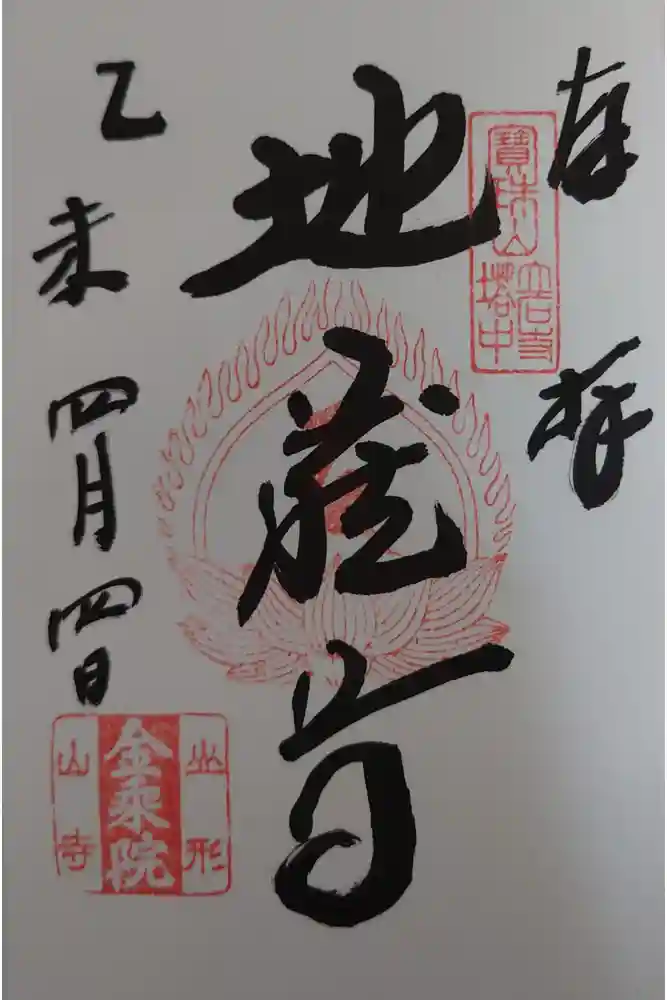 奉拝
寳珠山
立石寺
塔中
地蔵尊
乙未四月四日
山形
金乘院
山寺